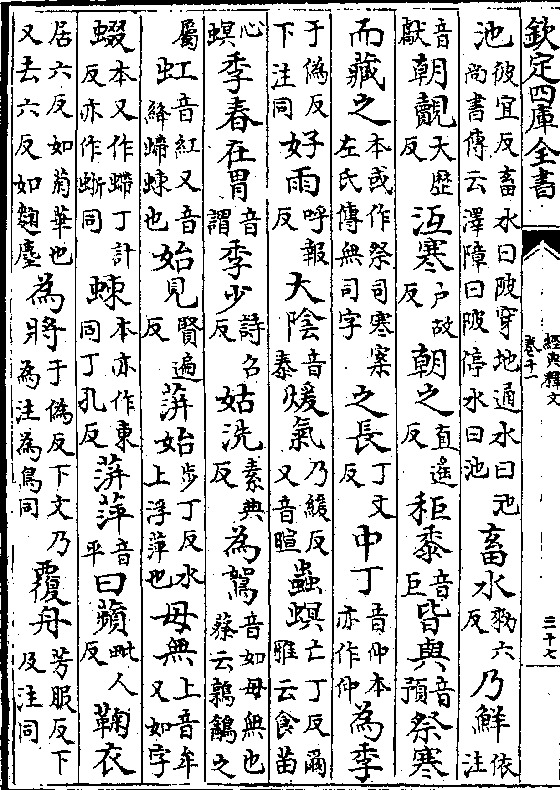 欽定四庫全書
經典釋文
卷十一
三十七
池彼宜反畜水曰陂穿地通水曰池尚書傳云澤障曰陂停水曰池畜水勑六反乃鮮依注
音獻朝覿大歷反沍寒戶故反朝之直遙反秬黍音巨皆與音預祭寒
而藏之本或作祭司寒案左氏傳無司字之長丁丈反中丁音仲本亦作仲為季
于偽反下注同好雨呼報反大陰音泰煖氣乃緩反又音暄蟲螟亡丁反爾雅云食苗
心螟季春在胃音謂季少詩召反姑洗素典反為鴽音如毋無也蔡云鶉鷂之
屬虹音紅又音絳螮蝀也始見賢遍反蓱始步丁反水上浮萍也毋無上音牟又如字
蝃本又作螮丁計反亦作蜥同蝀本亦作東同丁孔反蓱萍音平曰蘋毗人反鞠衣
居六反如菊華也又去六反如麴塵為將于偽反下文乃為注為鳥同覆舟芳服反下及注同